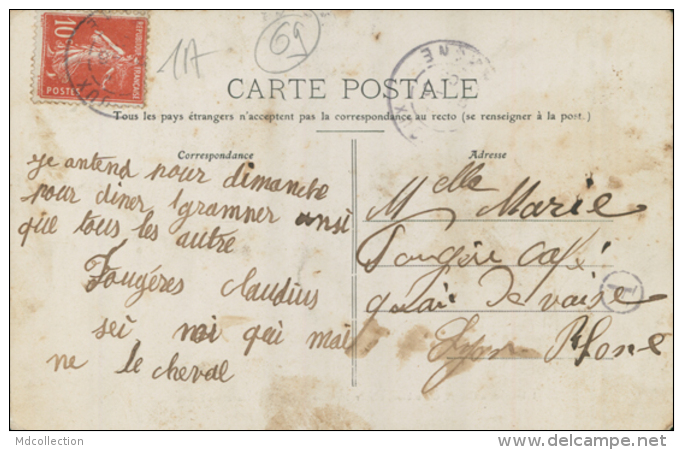 10
REPUBLIQUE FRANÇAISE
POSTES
1A
69
CARTE POSTALE
Tous les pays étrangers n'acceptent pas la correspondance au recto (se renseigner à la post.)
Correspondance
je antend pour dimanche
pour diner 1 gramner ansi
que tous les autre
Fougéres Claudius
sei moi qui mai
ne le cheval
Adresse
Melle Marie
Fougére café
quai de vaise
1
Lyon Rhone
Mdcollection
www.delcampe.net